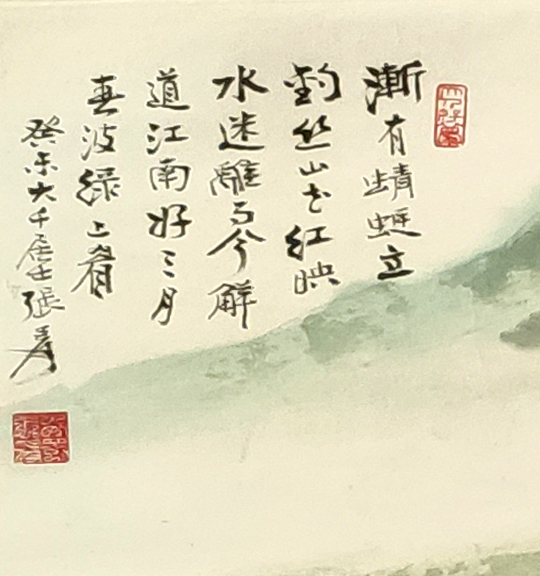 漸有蜻蜓立
釣絲山花紅映
水迷離而今解
道江南好三月
春波綠上眉
癸未大千居士張爰